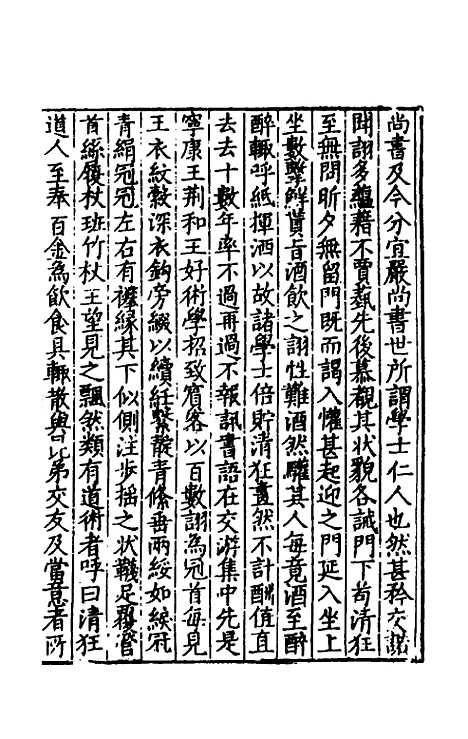 尚書及今分宜嚴尚書世所謂學士仁人也然甚矜交詔
聞詡多藴藉不賈執先後慕覯其狀貌各誡門下茍清狂
至無問昕夕無留門既而謁入懽甚起迎之門延入坐上
坐數擊鮮貰旨酒飲之詡性難酒然驩其人每竟酒至醉
醉輙呼紙揮洒以故諸學士倍貯清狂畫然不計酬值直
去去十數年率不過再過不報訊書語在交游集中先是
寧康王荆和王好術學招致賔客以百數詡為冠首每見
王衣紋縠深衣鈎旁綴以續紝繫鬆青絛垂兩綏如緌冠
青絹冠冠左右有襈緣其下似側注步揺之状韈足覆䈤
首絲履杖班竹杖王望見之飄然類有道術者呼曰清狂
道人至奉百金為飲食具輙散與昆弟交友及當意者所